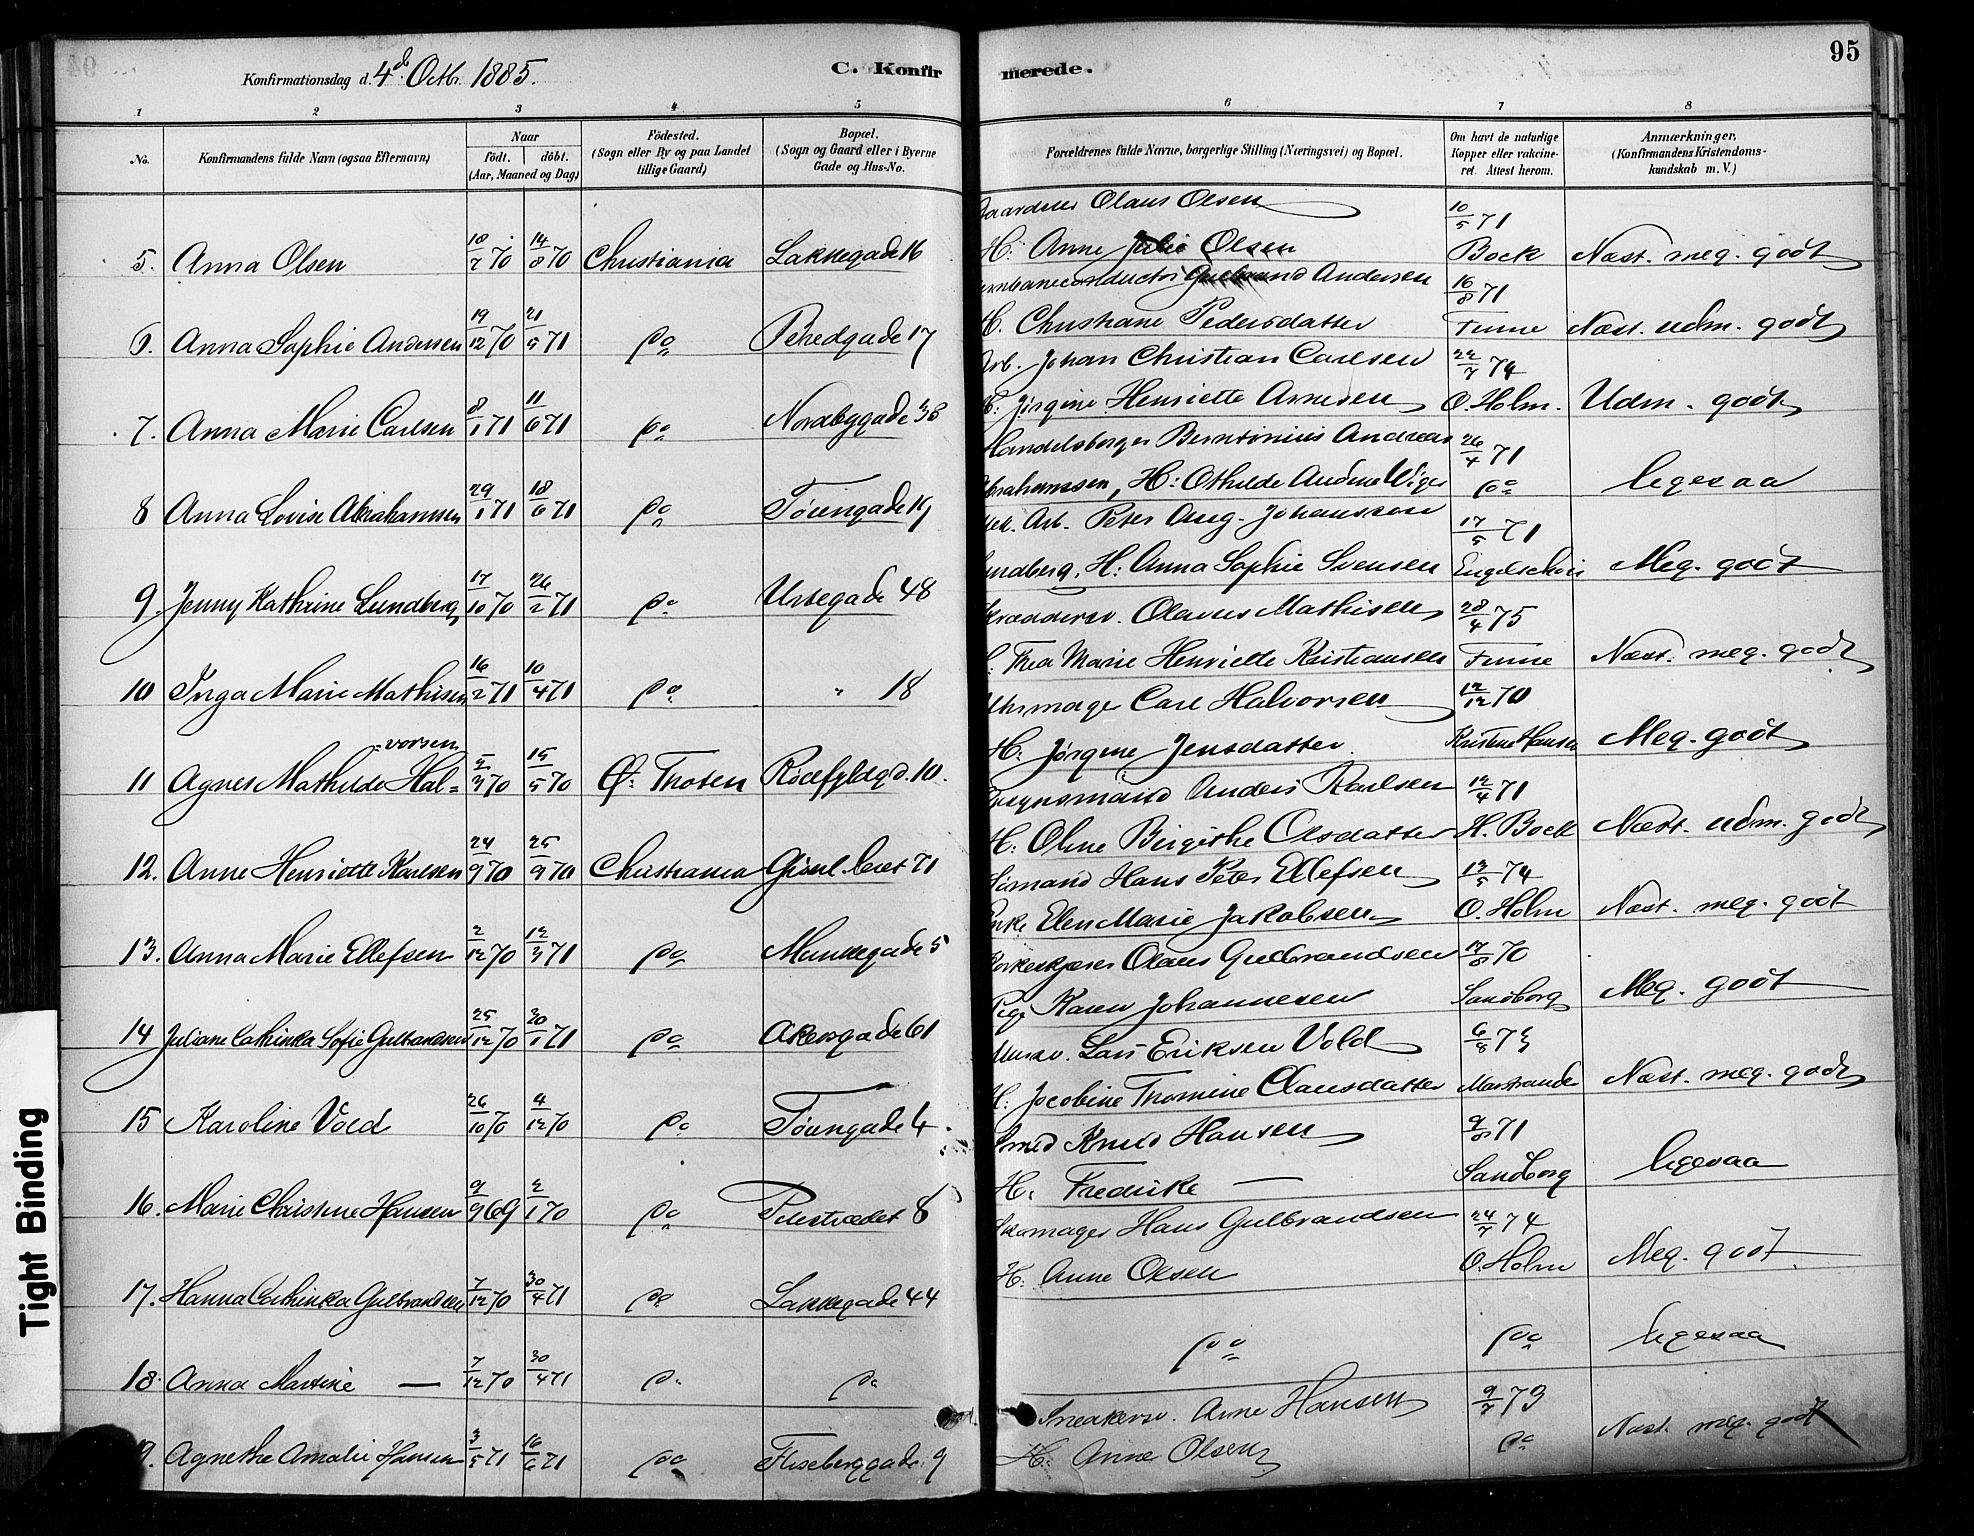 Konfirmationsdag d. 4de Octbr. 1885.
C. Konfirmerede.
95
1 2 3 4 5 6 7 8
No.
Konfirmandens fulde Navn (ogsaa Efternavn)
Naar
födt. döbt.
(Aar, Maaned og Dag)
Födested.
(Sogn eller By og paa Landet
tillige Gaard)
Bopæl.
(Sogn og Gaard eller i Byerne
Gade og Hus-No.
Forældrenes fulde Navne, borgerlige Stilling (Næringsvei) og Bopæl.
Om havt de naturlige
Kopper eller vakcine-
ret. Attest herom.
Anmærkninger.
(Konfirmandens Kristendoms-
kundskab m. V.)
Olaus Olsen 10/5 71
5. Anna Olsen 10/7 70 14/8 70 Christiania Lakkegade 16 H: Anne Julie Olsen Bock Næst. meg. godt
Gulbrand Andersen 16/8 71
6. Anna Sophie Andersen 19/12 70 21/5 71 do 17 H. Christiane Pedersdatter Finne Næst. udm. godt
Arb. Johan Christian Carlsen 22/7 74
7. Anna Marie Carlsen 8/1 71 11/6 71 do Nordbygade 38 H: Jørgine Henriette Arnesen O. Holm. Udm. godt
Handelsborger Andreas 26/4 71
8 Anna Lovise Abrahamsen 29/1 71 18/6 71 do Töiengade 19 Abrahamsen, H: Othilde do ligesaa
Arb. Peter Aug. Johansson 17/5 71
9 Jenny Kathrine Lundberg 17/10 70 26/2 71 do Urtegade 48 Lundberg, H: Anna Sophie Svensen Meg. godt
Skræddersv. Olaves Mathisen 28/4 75
10 Inga Marie Mathisen 16/2 71 10/4 71 do " 18 Thea Marie Henriette Kristiansen Finne Næst. meg. godt
Uhrmager Carl Halvorsen 12/12 70
-vorsen
11 Agnes Mathilde Hal= 2/3 70 15/5 70 Ø: Thoten Rödfyldgd. 10. H: Jørgine Jensdatter Kristine Hansen Meg. godt
Anders Karlsen 12/4 71
12. Anne Henriette Karlsen 24/9 70 25/9 70 Christiania Grönl.leret 71 H: Oline Birgithe Olsdatter H. Bock Næst. udm. godt
Sömand Hans Peter Ellefsen 13/5 74
13. Anna Marie Ellefsen 2/12 70 12/3 71 do Munkegade 5 Enke Elen Marie Jakobsen O. Holm Næst. meg. godt
Korkeskjærer Olaus Gulbrandsen 17/8 70
14 Juliane Cathinka Sofie Gulbrandsen 25/12 70 20/1 71 do Akersgade 61 Pige Karen Johannesen Sandborg Meg. godt
Mursv. Lars Eriksen Vold 6/8 73
15 Karoline Vold 26/10 70 4/12 70 do Töiengade 4. H: Jocobine Thomine Clausdatter Marstrander Næst. meg. godt
Smed Knud Hansen 9/8 71
16. Marie Christine Hansen 9/9 69 2/1 70 do Pilestrædet 8 H: Fredrikke — Sandborg ligesaa
Skomager Hans Gulbrandsen 24/7 74
17. Hanna Cathinka Gulbrandsen 7/12 70 30/4 71 do Lakkegade 44 H: Anne Olsen O. Holm Meg. godt
18. Anna Martine — 7/12 70 30/4 71 do do do do ligesaa
Snekersv. Arne Hansen 9/7 73
19. Agnethe Amalie Hansen 3/5 71 16/6 71 do Flisberggade 9 H: Anne Olsen do Næst. meg. godt
Tight Binding